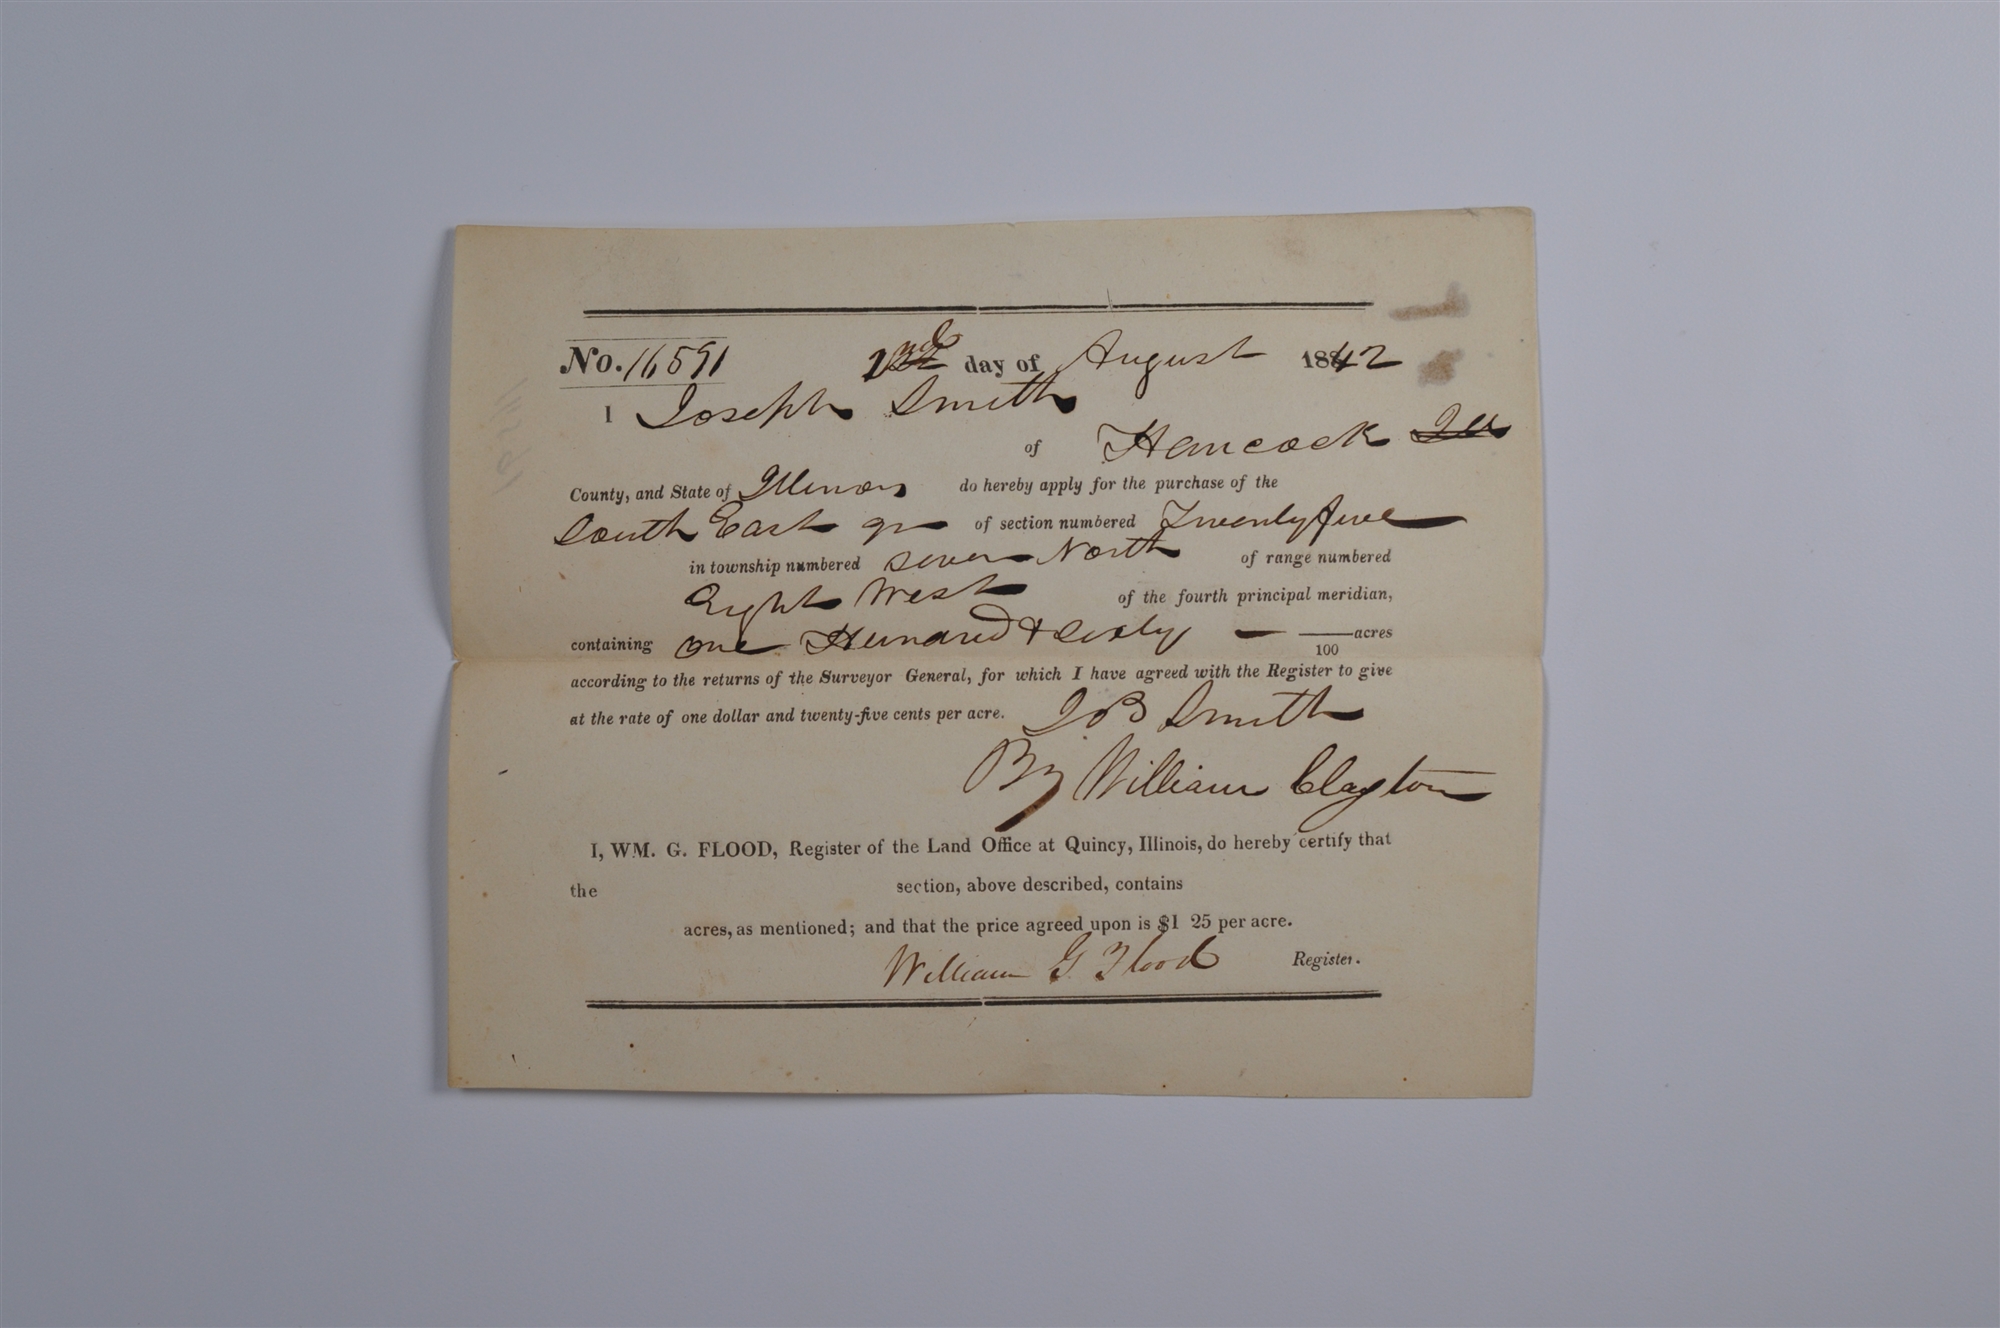 No. 16591 day of August 1842
I Joseph Smith
of Hancock Ill
County, and State of Illinois do hereby apply for the purchase of the
South East qr of section numbered Twenty five
in township numbered seven North of range numbered
Eight West of the fourth principal meridian,
containing one Hundred & sixty — —— acres
100
according to the returns of the Surveyor General, for which I have agreed with the Register to give
at the rate of one dollar and twenty-five cents per acre. Smith
By William Clayton
I, WM. G. FLOOD, Register of the Land Office at Quincy, Illinois, do hereby certify that
the section, above described, contains
acres, as mentioned; and that the price agreed upon is $1 25 per acre.
William G. Flood Register.